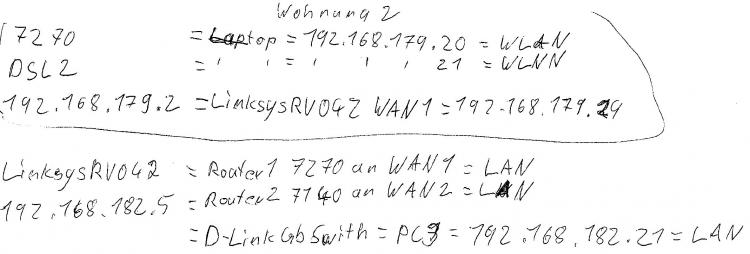 Wohnung 2
7270 = Laptop = 192.168.179.20 = WLAN
DSL2 = ' ' = ' ' ' 21 = WLNN
192.168.179.2 = LinksysRV042 WAN1 = 192.168.179.29
LinksysRV042 = Router1 7270 an WAN1 = LAN
192.168.182.5 = Router2 7140 an WAN2 = LAN
= D-LinkGbSwith = PC3 = 192.168.182.21 = LAN